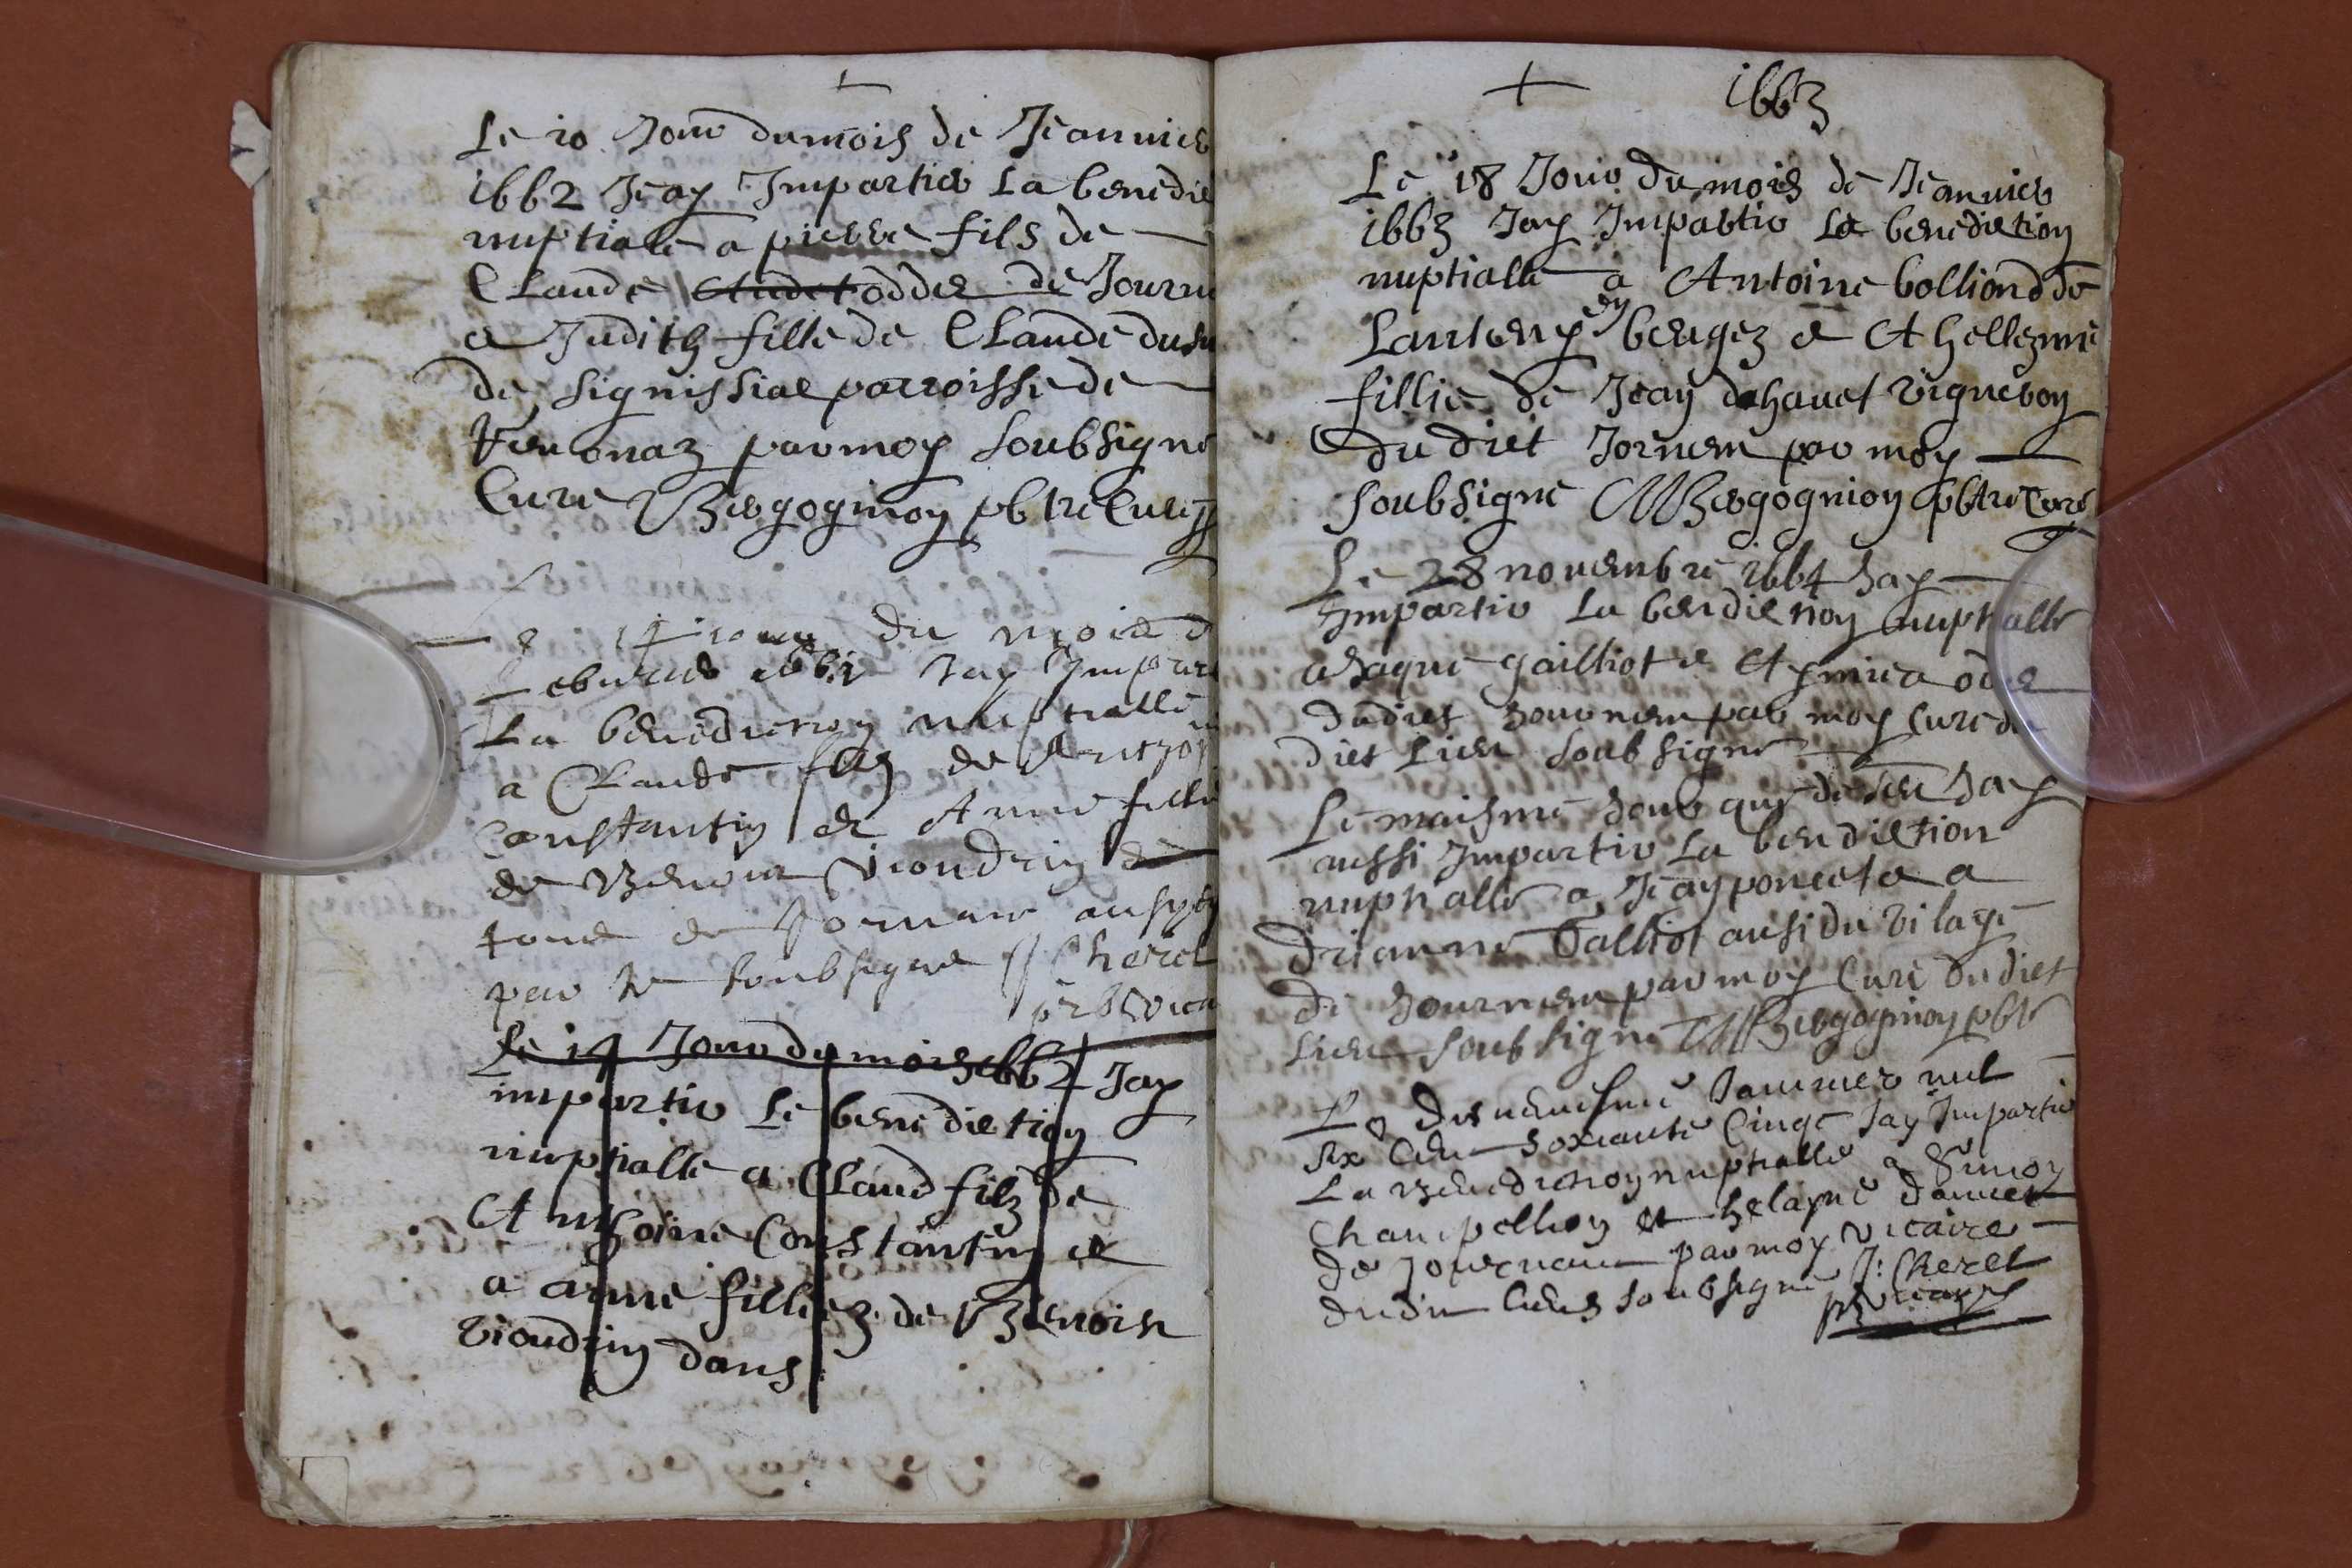 Le 10 Jour du mois de Jeanuier
1662 Jeay Impartier La benedi
nuptiale a pierre fils de
Claude odder de Journ
a Judith fille de Claude
de Signissiae parroisse de
par moy soubsigné
Curé Bergognion pbtre Curé
Le 14 jour du mois d
feburier 1662 Jay Impart
La benediction nuptialle
a Claude filz de
Constantin et Anne fille
de Benoit vioudrin
tous de Jornan
par me soubsigne Cheret
prb vica
Le 14 Jour du mois 1662 Jay
impartir Le benediction
nuptialle a Claud filz de
Anthoine Constantin et
a anne filliez de Benoist
vioudrin dans
1663
Le 18 Jour du mois de Jeanuier
1663 Jay Impartir La benediction
nuptialle a Antoine bolliond de
en beugez e
fillie de Jean
du dict Jornem par moy
soubsigné MBergognion pbtre Curé
Le 28 nouembre 1664 Jay
Impartir La bendiction nuptialle
a Jaque gailliot e odde
du dict Journem par moy Curé du
dict Lieu soubsigné
Le maisme Jour que desseu Jay
aussi Impartir La bendiction
nuptialle a Jean poncet e a
Galliot ausi du vilage
de Journem par moy Curé du dict
Lieu soubsigné MBergognion pbtr
Le disneufsme Januier mil
six Cen soxiante Cinqc Jay Impartir
La Benediction nuptialle a Simon
Champellion et
de Journan par moy vicaire
dudit Lieus soubsigné J: Cheret
pr vicayre